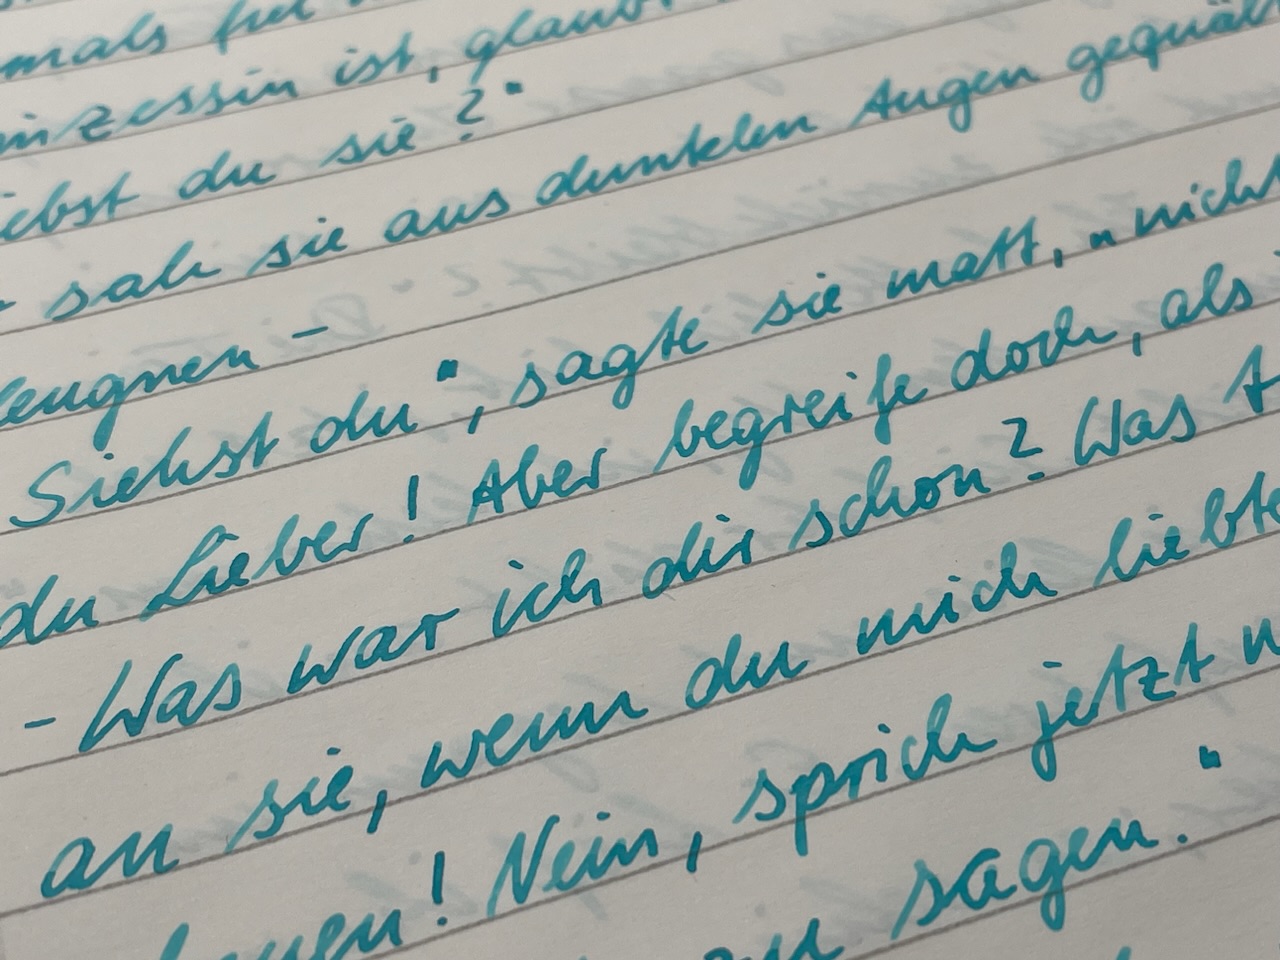 mals
inzessin ist, glaub
iebst du sie?"
- sah sie aus dunkelen Augen gequäl
leugnen -
Siehst du", sagte sie matt, "nicht
du Lieber! Aber begreife doch, als
- Was war ich dir schon? Was
an sie, wenn du mich liebte
! Nein, sprich jetzt
sagen."